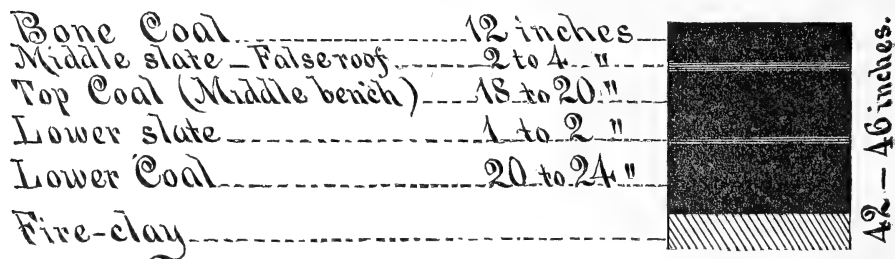 Bone Coal 12 inches
Middle slate - False roof 2 to 4 "
Top Coal (Middle bench) 18 to 20 "
Lower slate 1 to 2 "
Lower Coal 20 to 24 "
Fire-clay
42 - 46 inches.